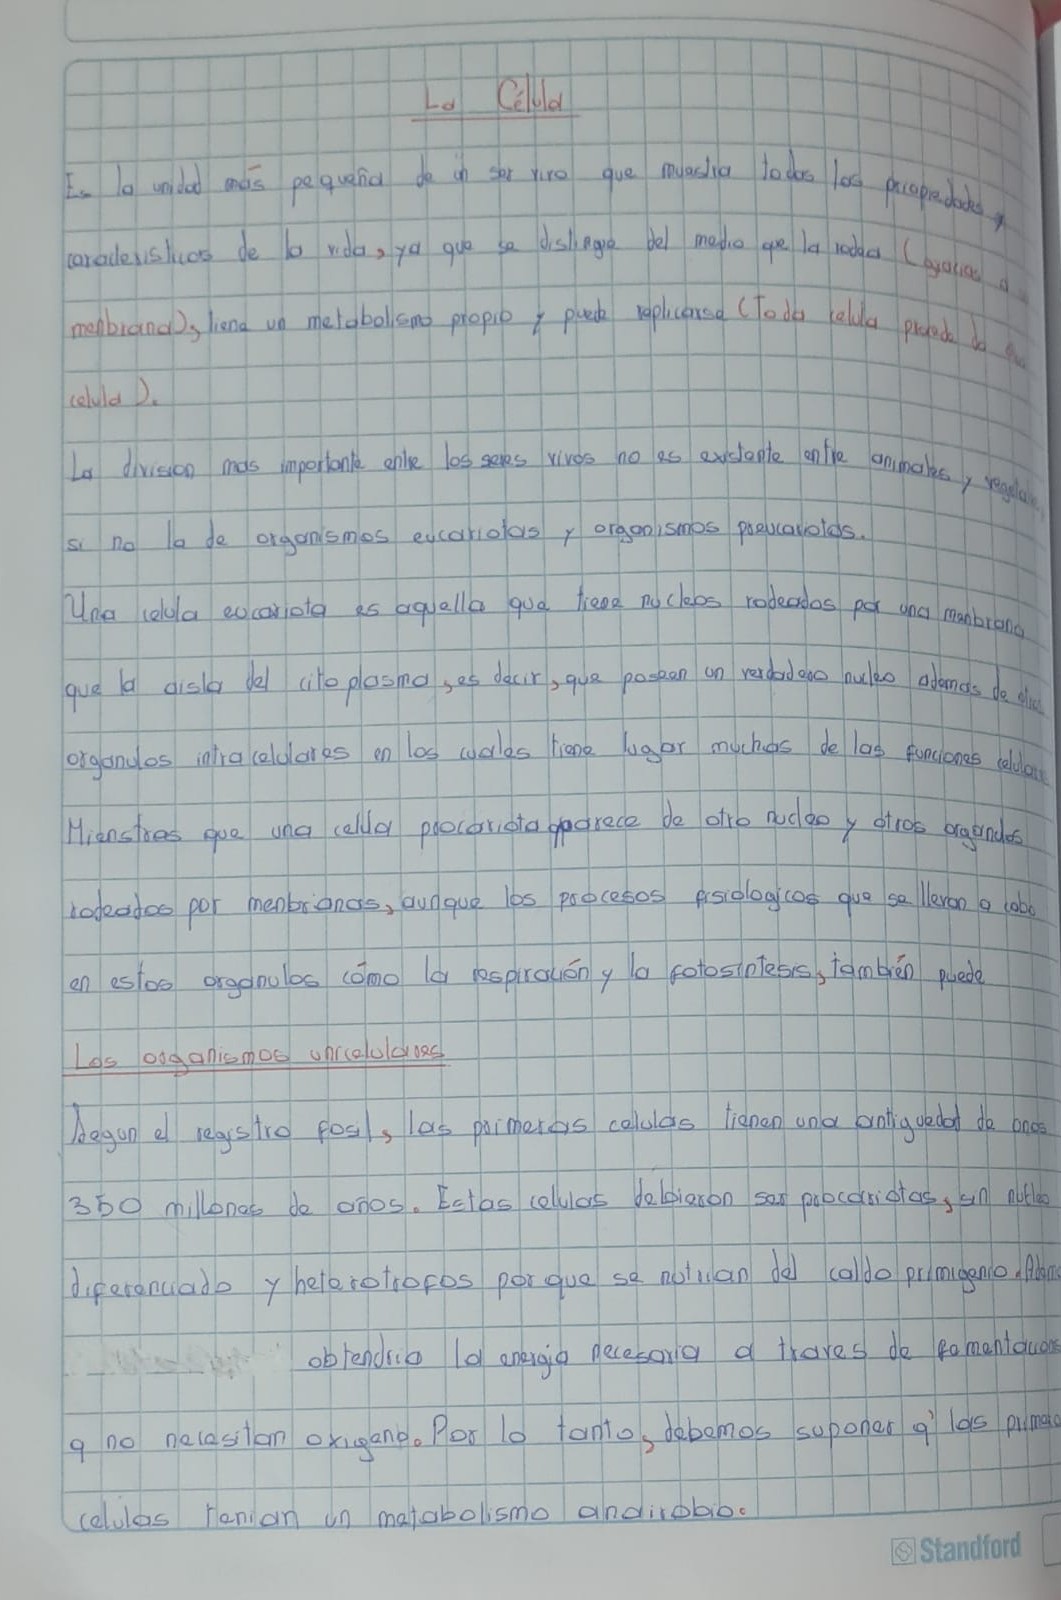 La Célula
Es la unidad más pequeña de un ser vivo que muestra todas las propiedades y
caracteristicas de la vida, ya que se distingue del medio que la rodea (gracias a
menbrana), tiene un metabolismo propio y puede replicarse (Toda celula procede de
celula).
La division mas importante entre los seres vivos no es existente entre animales y vegetales,
si no la de organismos eucariotas y organismos procariotas.
Una celula eucariota es aquella que tiene nucleos rodeados por una menbrana
que la aisla del citoplasma, es decir, que poseen un verdadero nucleo ademas de
organulos intracelulares en los cuales tiene lugar muchas de las funciones celulares
Mienstras que una celula procariota aparece de otro nucleo y otros organulos
rodeados por menbranas, aunque los procesos fisiologicos que se llevan a cabo
en estos organulos cómo la respiración y la fotosintesis, también puede
Los organismos unicelulares
Segun el registro fosil, las primeras celulas tienen una antiguedad de unos
350 millones de años. Estas celulas debieron ser procariotas, sin nucleo
diferenciado y heterotrofos por que se nutrian del caldo primigenio. Adem
obtendria la energia necesaria a traves de fomentacions
q no necesitan oxigeno. Por lo tanto, debemos suponer q' las primera
celulas tenian un metabolismo anairobio.
Standford